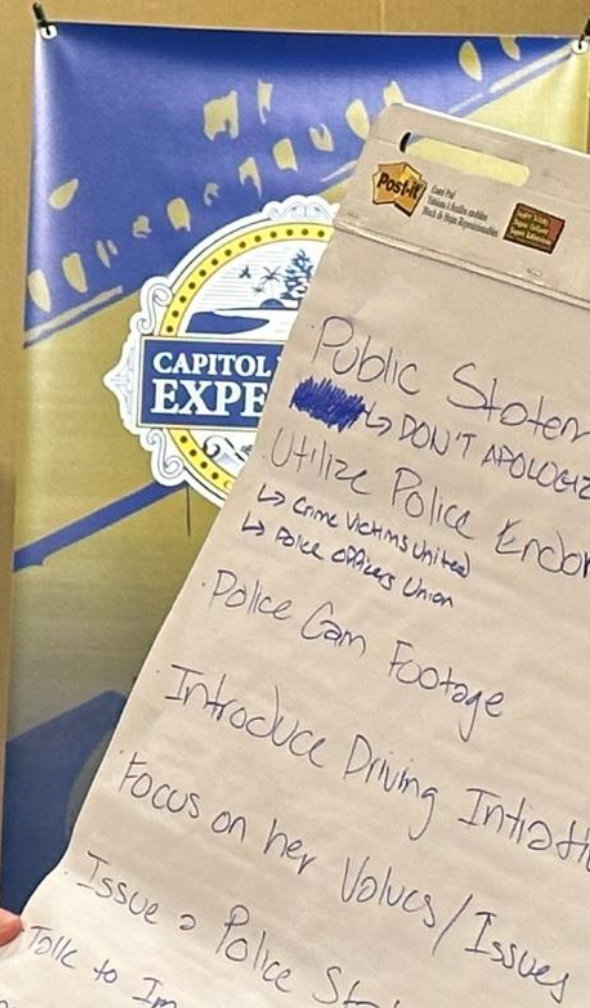 Post-it
CAPITOL
EXPE
Public Statem
↳ DON'T APOLOGIZ
Utilize Police Endor
↳ Crime Victims United
↳ Police Officers Union
· Police Cam Footage
· Introduce Driving Intiati
· Focus on her Values/Issues
· Issue a Police Sta
Talk to Im